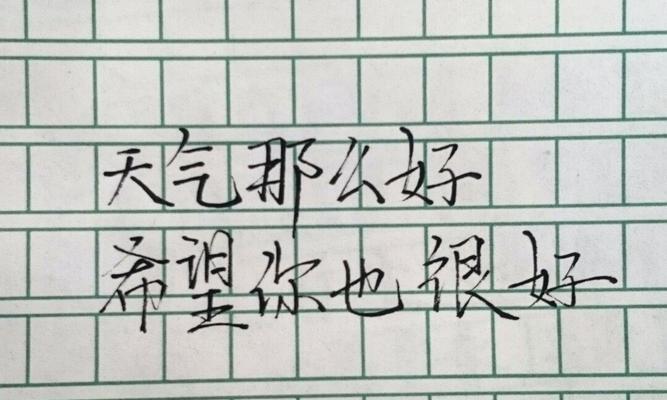 天气那么好
希望你也很好